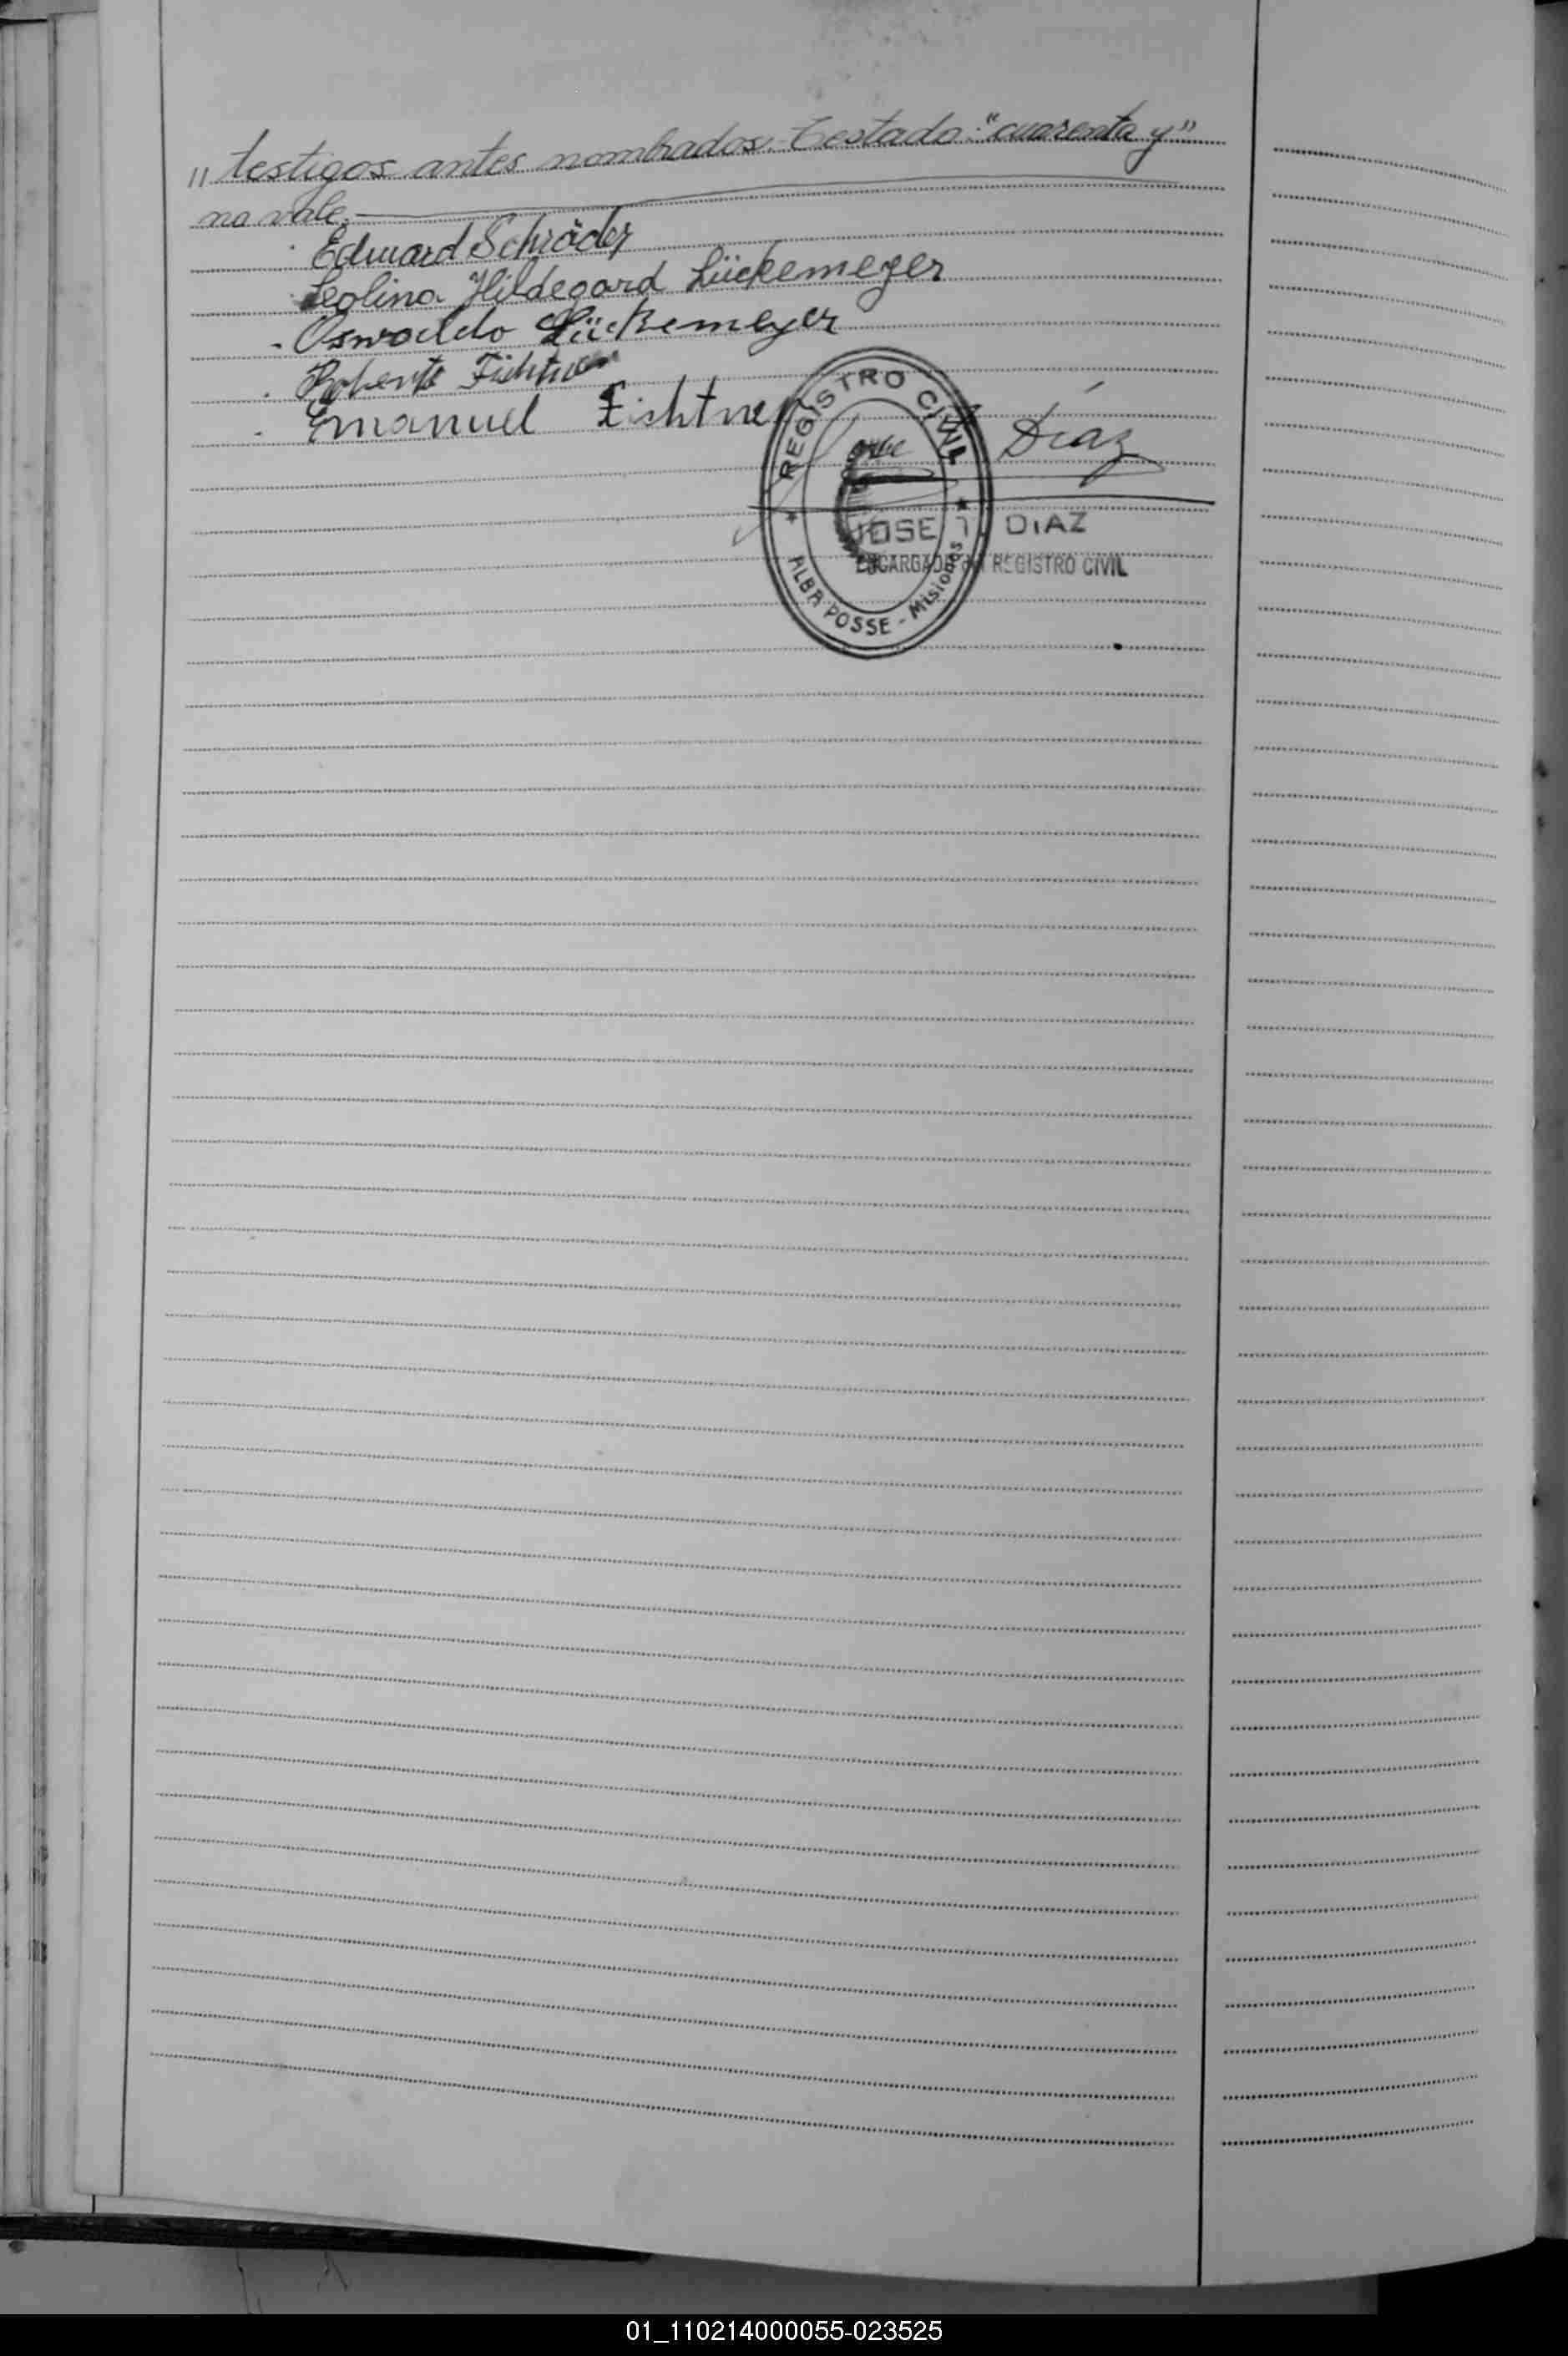 " testigos antes nombrados. Testado: "cuarenta y"
no vale.
Eduard Schröder
Leolina Hildegard Lückemeyer
Oswaldo Lückemeyer
Roberto Fichtner
Emanuel Fichtner
REGISTRO CIVIL
José Díaz
JOSE I. DIAZ
ENCARGADO del REGISTRO CIVIL
ALBA POSSE - Misiones
01_110214000055-023525